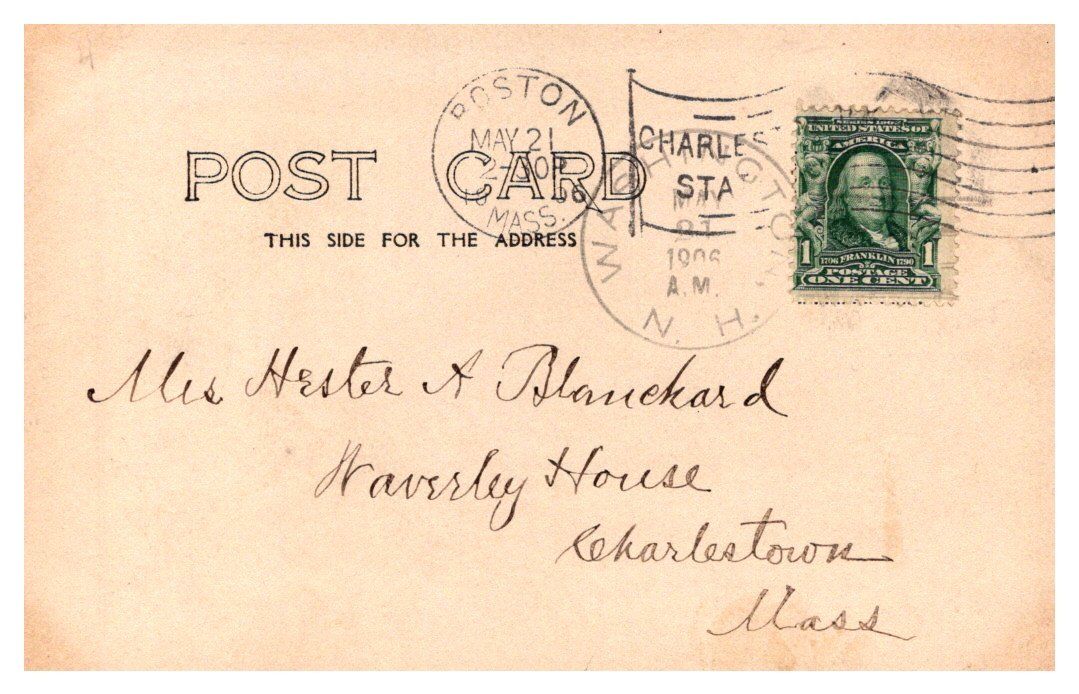 BOSTON
MAY 21
MASS.
CHARLES
STA
WASHINGTON
N. H.
MAY
21
1906
A.M.
SERIES 1902
UNITED STATES OF
AMERICA
1 1706 FRANKLIN 1790 1
POSTAGE
ONE CENT
POST CARD
THIS SIDE FOR THE ADDRESS
Mrs Hester A Blanchard
Waverley House
Charlestown
Mass